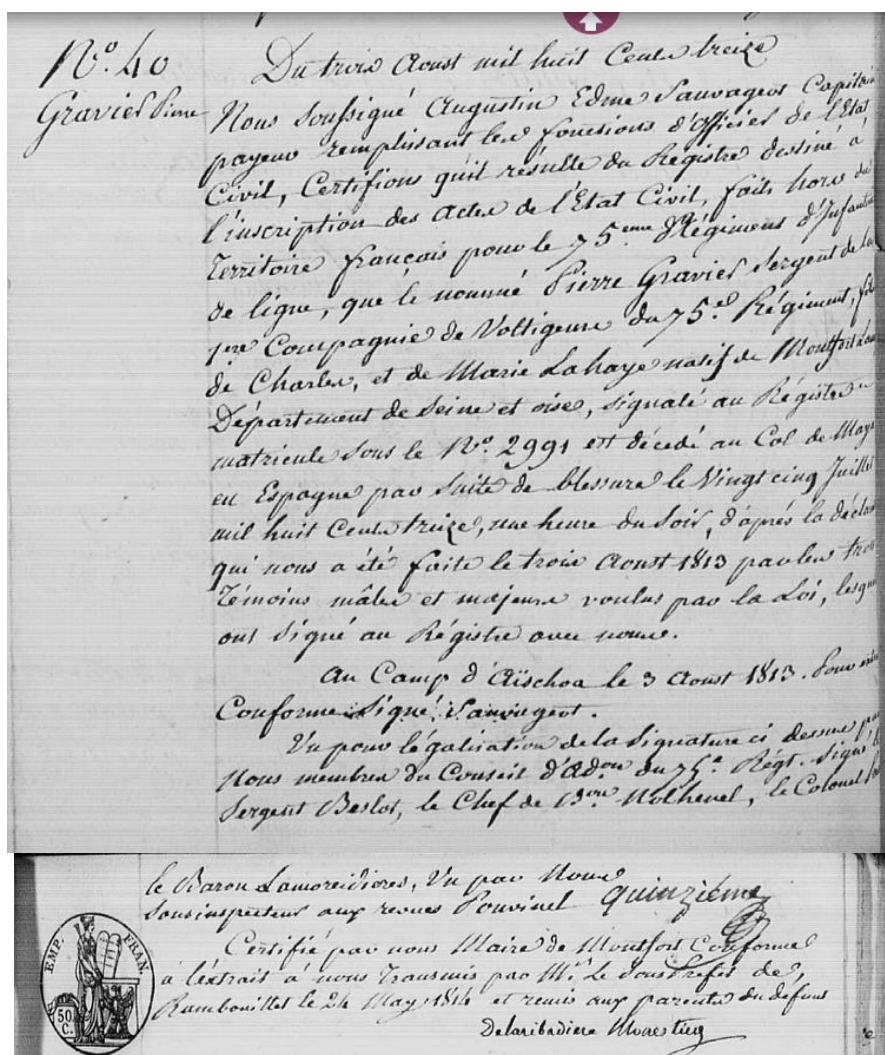 No. 40
Gravier Pierre
Du trois Aoust mil huit Cents treize
Nous Soussigné Augustin Edme Sauvageot Capitain
payeur remplissant les fonctions d'officier de l'Etat
Civil, Certifions qu'il résulte du Registre destiné à
l'inscription des actes de l'Etat Civil, faits hors du
Territoire français pour le 75eme Régiment d'Infanterie
de ligne, que le nommé Pierre Gravier Sergent de la
1ere Compagnie de Voltigeurs du 75.e Régiment, fils
de Charles, et de Marie Lahaye natif de Montfort Lam
Département de Seine et oise, signalé au Régistre
matricule sous le No. 2991 est décedé au Col de Maya
en Espagne par Suite de blessure le Vingt cinq Juillet
mil huit Cents treize, une heure du Soir, d'après la déclar
qui nous a été faite le trois Aoust 1813 par les trois
Témoins mâles et majeurs voulus par la Loi, lesquels
ont Signé au Régistre avec nous.
Au Camp d'Aïschoa le 3 Aoust 1813. Pour extrait
Conforme Signé: Sauvageot.
Vu pour légalisation de la Signature ci dessus par
Nous membres du Conseil d'Ad.on du 75.e Régt. Signé le
Sergent Beslot, le Chef de B.on, le Colonel
le Baron, Vu par Nous
Sous inspecteur aux revues quinzième
Certifié par nous Maire de Montfort Conforme
à l'extrait à nous Transmis par Mr. Le Sous Prefet de
Rambouillet le 24 May 1814 et remis aux parents du défunt
EMP. FRAN.
50 C.